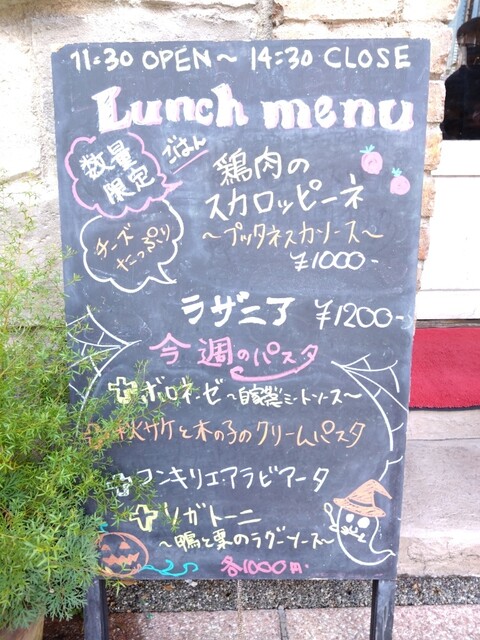 11:30 OPEN～14:30 CLOSE
Lunch menu
数量
限定
ごはん
鶏肉の
スカロッピーネ
～プッタネスカソース～
¥1000-
チーズ
たっぷり
ラザニア ¥1200-
今週のパスタ
＋ボロネーゼ～自家製ミートソース～
＋秋サケと木の子のクリームパスタ
＋コンキリエアラビアータ
＋リガトーニ
～鴨と栗のラグーソース～
各1000円